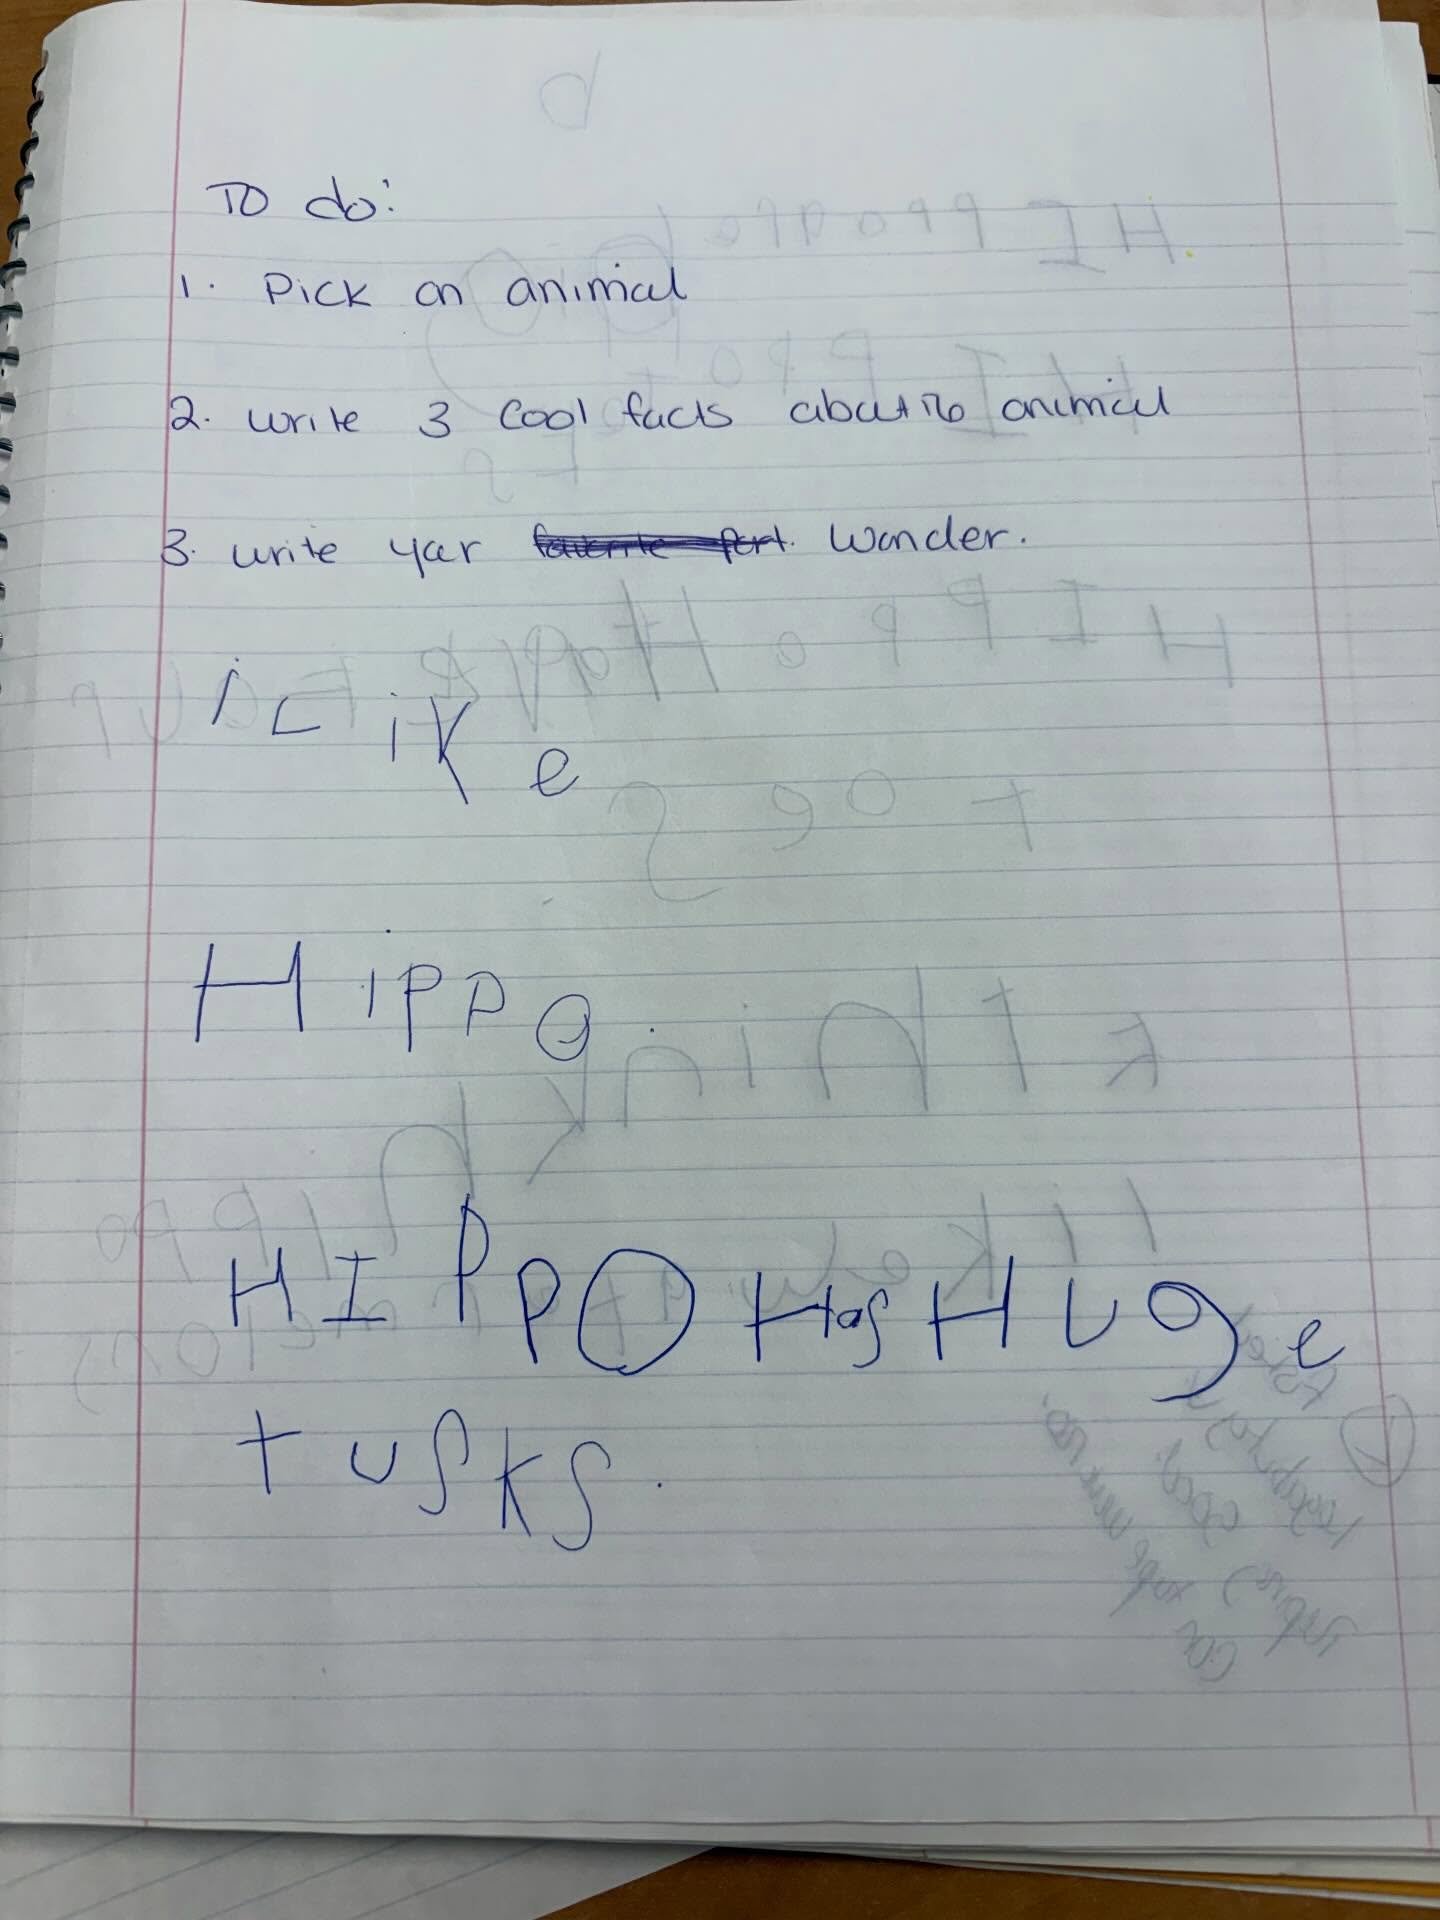 To do:
1. Pick an animal
2. write 3 cool facts about animal
3. write your favorite part. Wonder.
i Like
Hippo
HIPpO Has HUge
tusKs.